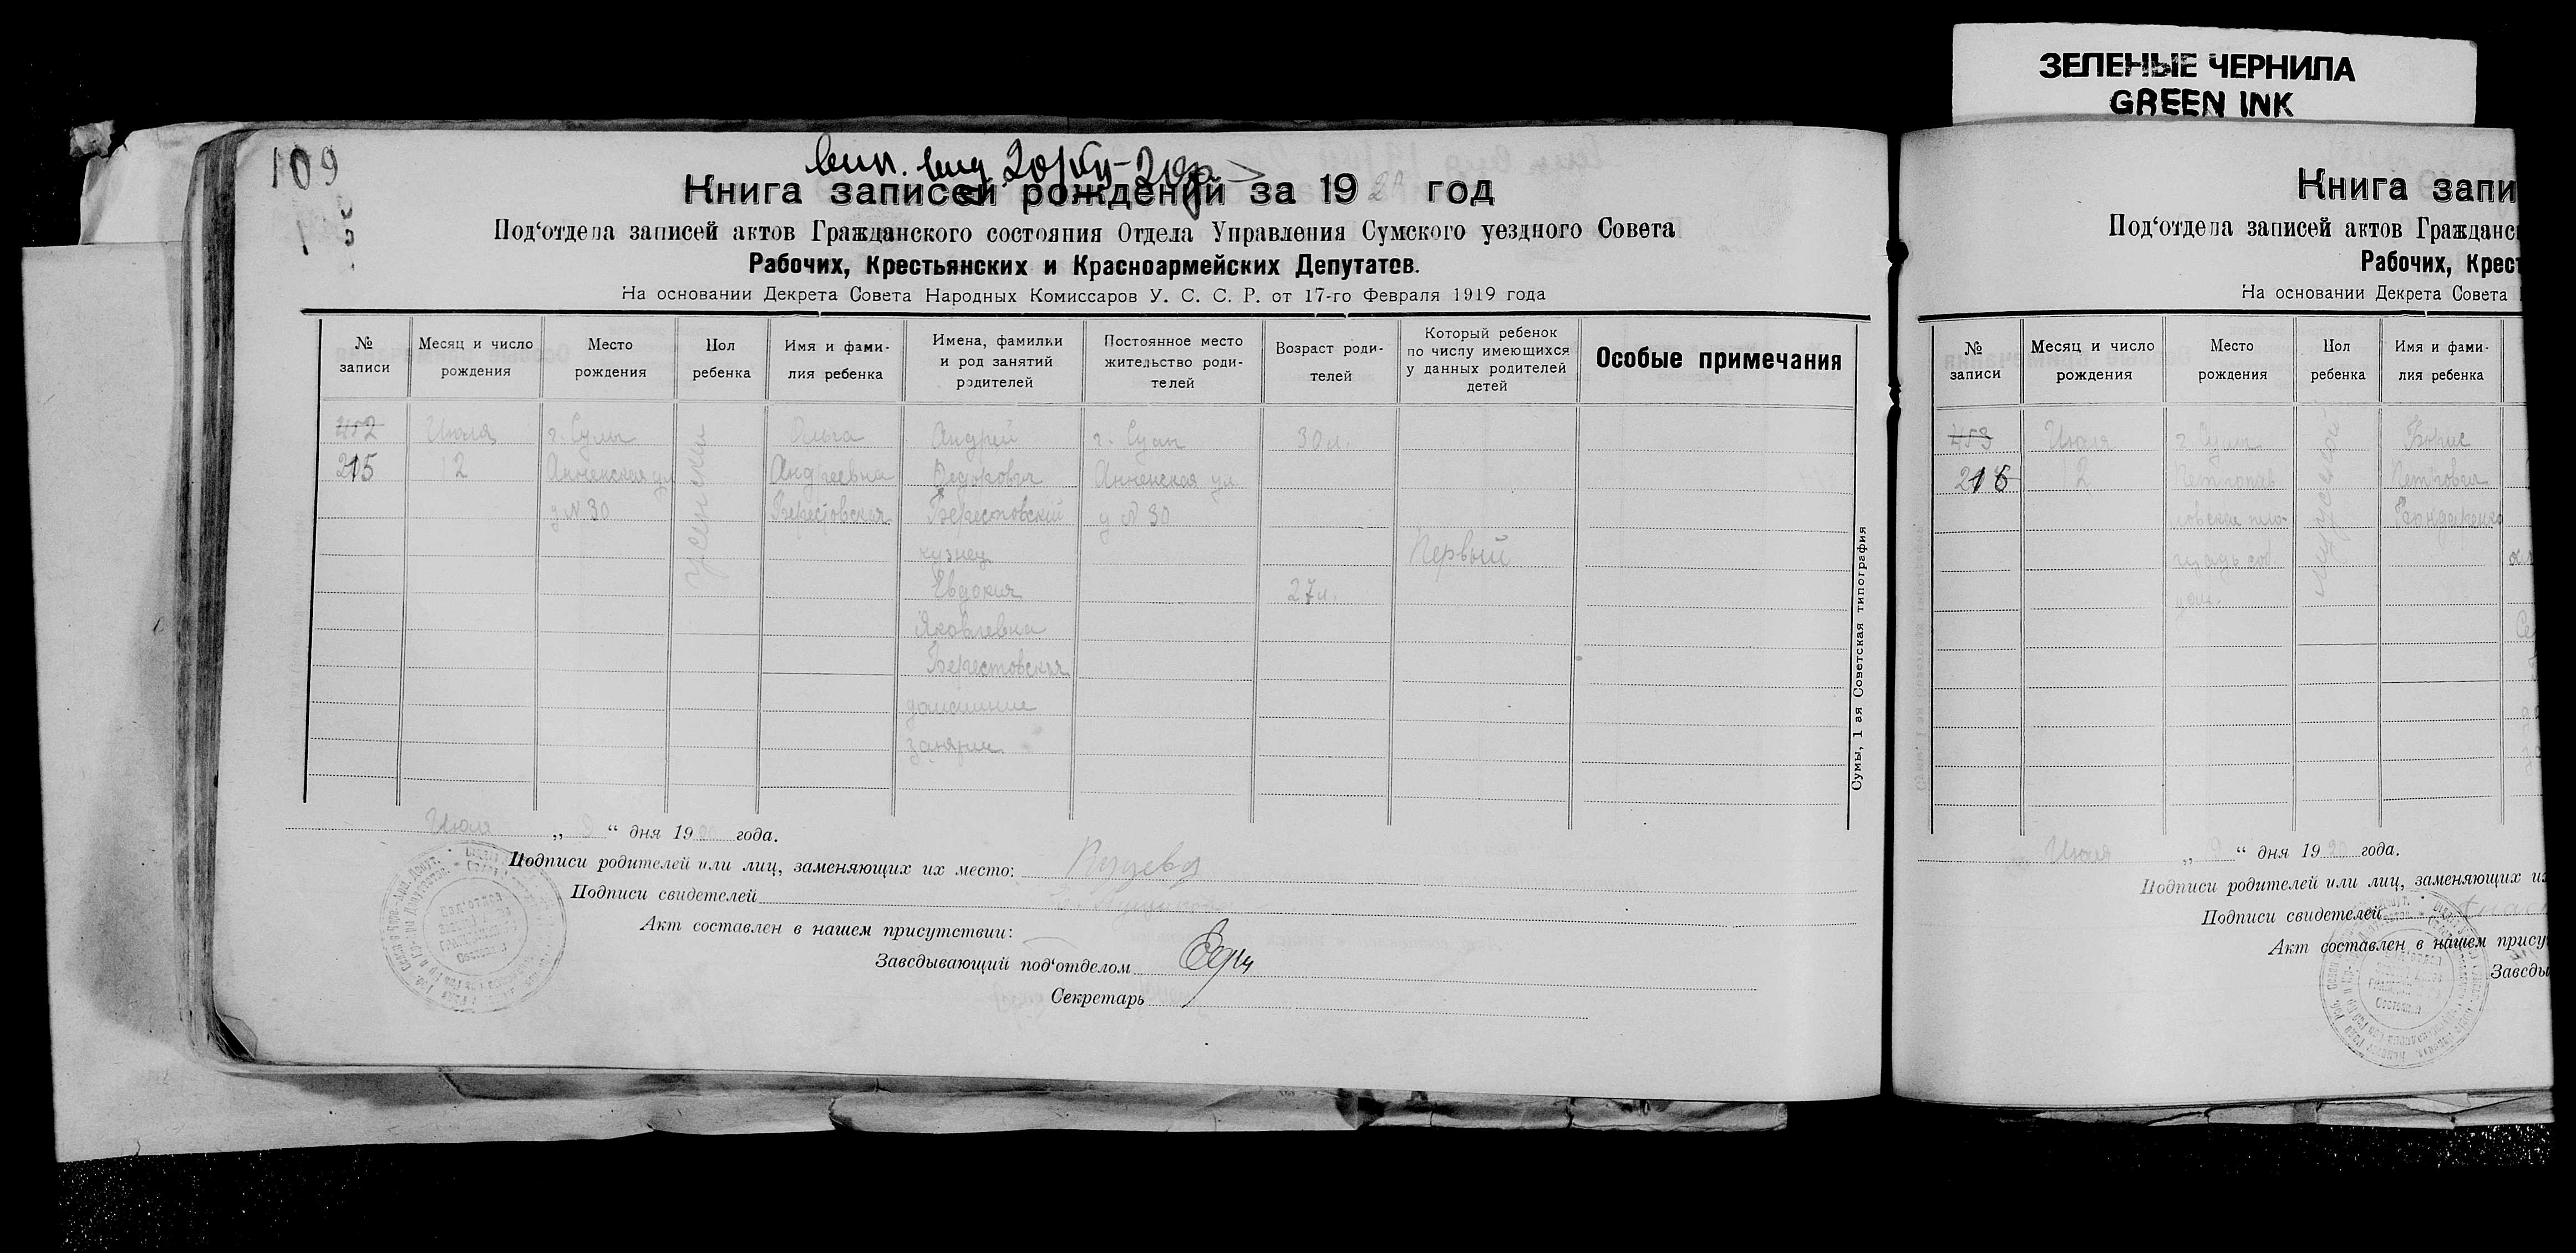 ЗЕЛЕНЫЕ ЧЕРНИЛА
GREEN INK
109
Книга записей рождений за 1920 год
Под‘отдела записей актов Гражданского состояния Отдела Управления Сумского уездного Совета
Рабочих, Крестьянских и Красноармейских Депутатов.
На основании Декрета Совета Народных Комиссаров У. С. С. Р. от 17-го Февраля 1919 года
№ записи
Месяц и число рождения
Место рождения
Пол ребенка
Имя и фамилия ребенка
Имена, фамилии и род занятий родителей
Постоянное место жительство родителей
Возраст родителей
Который ребенок по числу имеющихся у данных родителей детей
Особые примечания
452
215
Июля
12
г. Сумы
Анненская ул
д № 30
женский
Ольга
Андреевна
Берестовская
Андрей
Федорович
Берестовский
кузнец
Евдокия
Яковлевна
Берестовская
домашние
занятия
г. Сумы
Анненская ул
д № 30
30 л.
27 л.
Первый
Сумы, 1 ая Советская типография
Июля „ “ дня 1920 года.
Подписи родителей или лиц, заменяющих их место:
Подписи свидетелей
Акт составлен в нашем присутствии:
Заведывающий под‘отделом
Секретарь
Книга запи
Под‘отдела записей актов Гражданс
Рабочих, Крест
На основании Декрета Совета
№ записи
Месяц и число рождения
Место рождения
Пол ребенка
Имя и фамилия ребенка
453
216
Июля
12
г. Сумы
мужской
Борис
Петрович
Бондаренко
Июля „ “ дня 1920 года.
Подписи родителей или лиц, заменяющих их
Подписи свидетелей
Акт составлен в нашем прису
Заведы